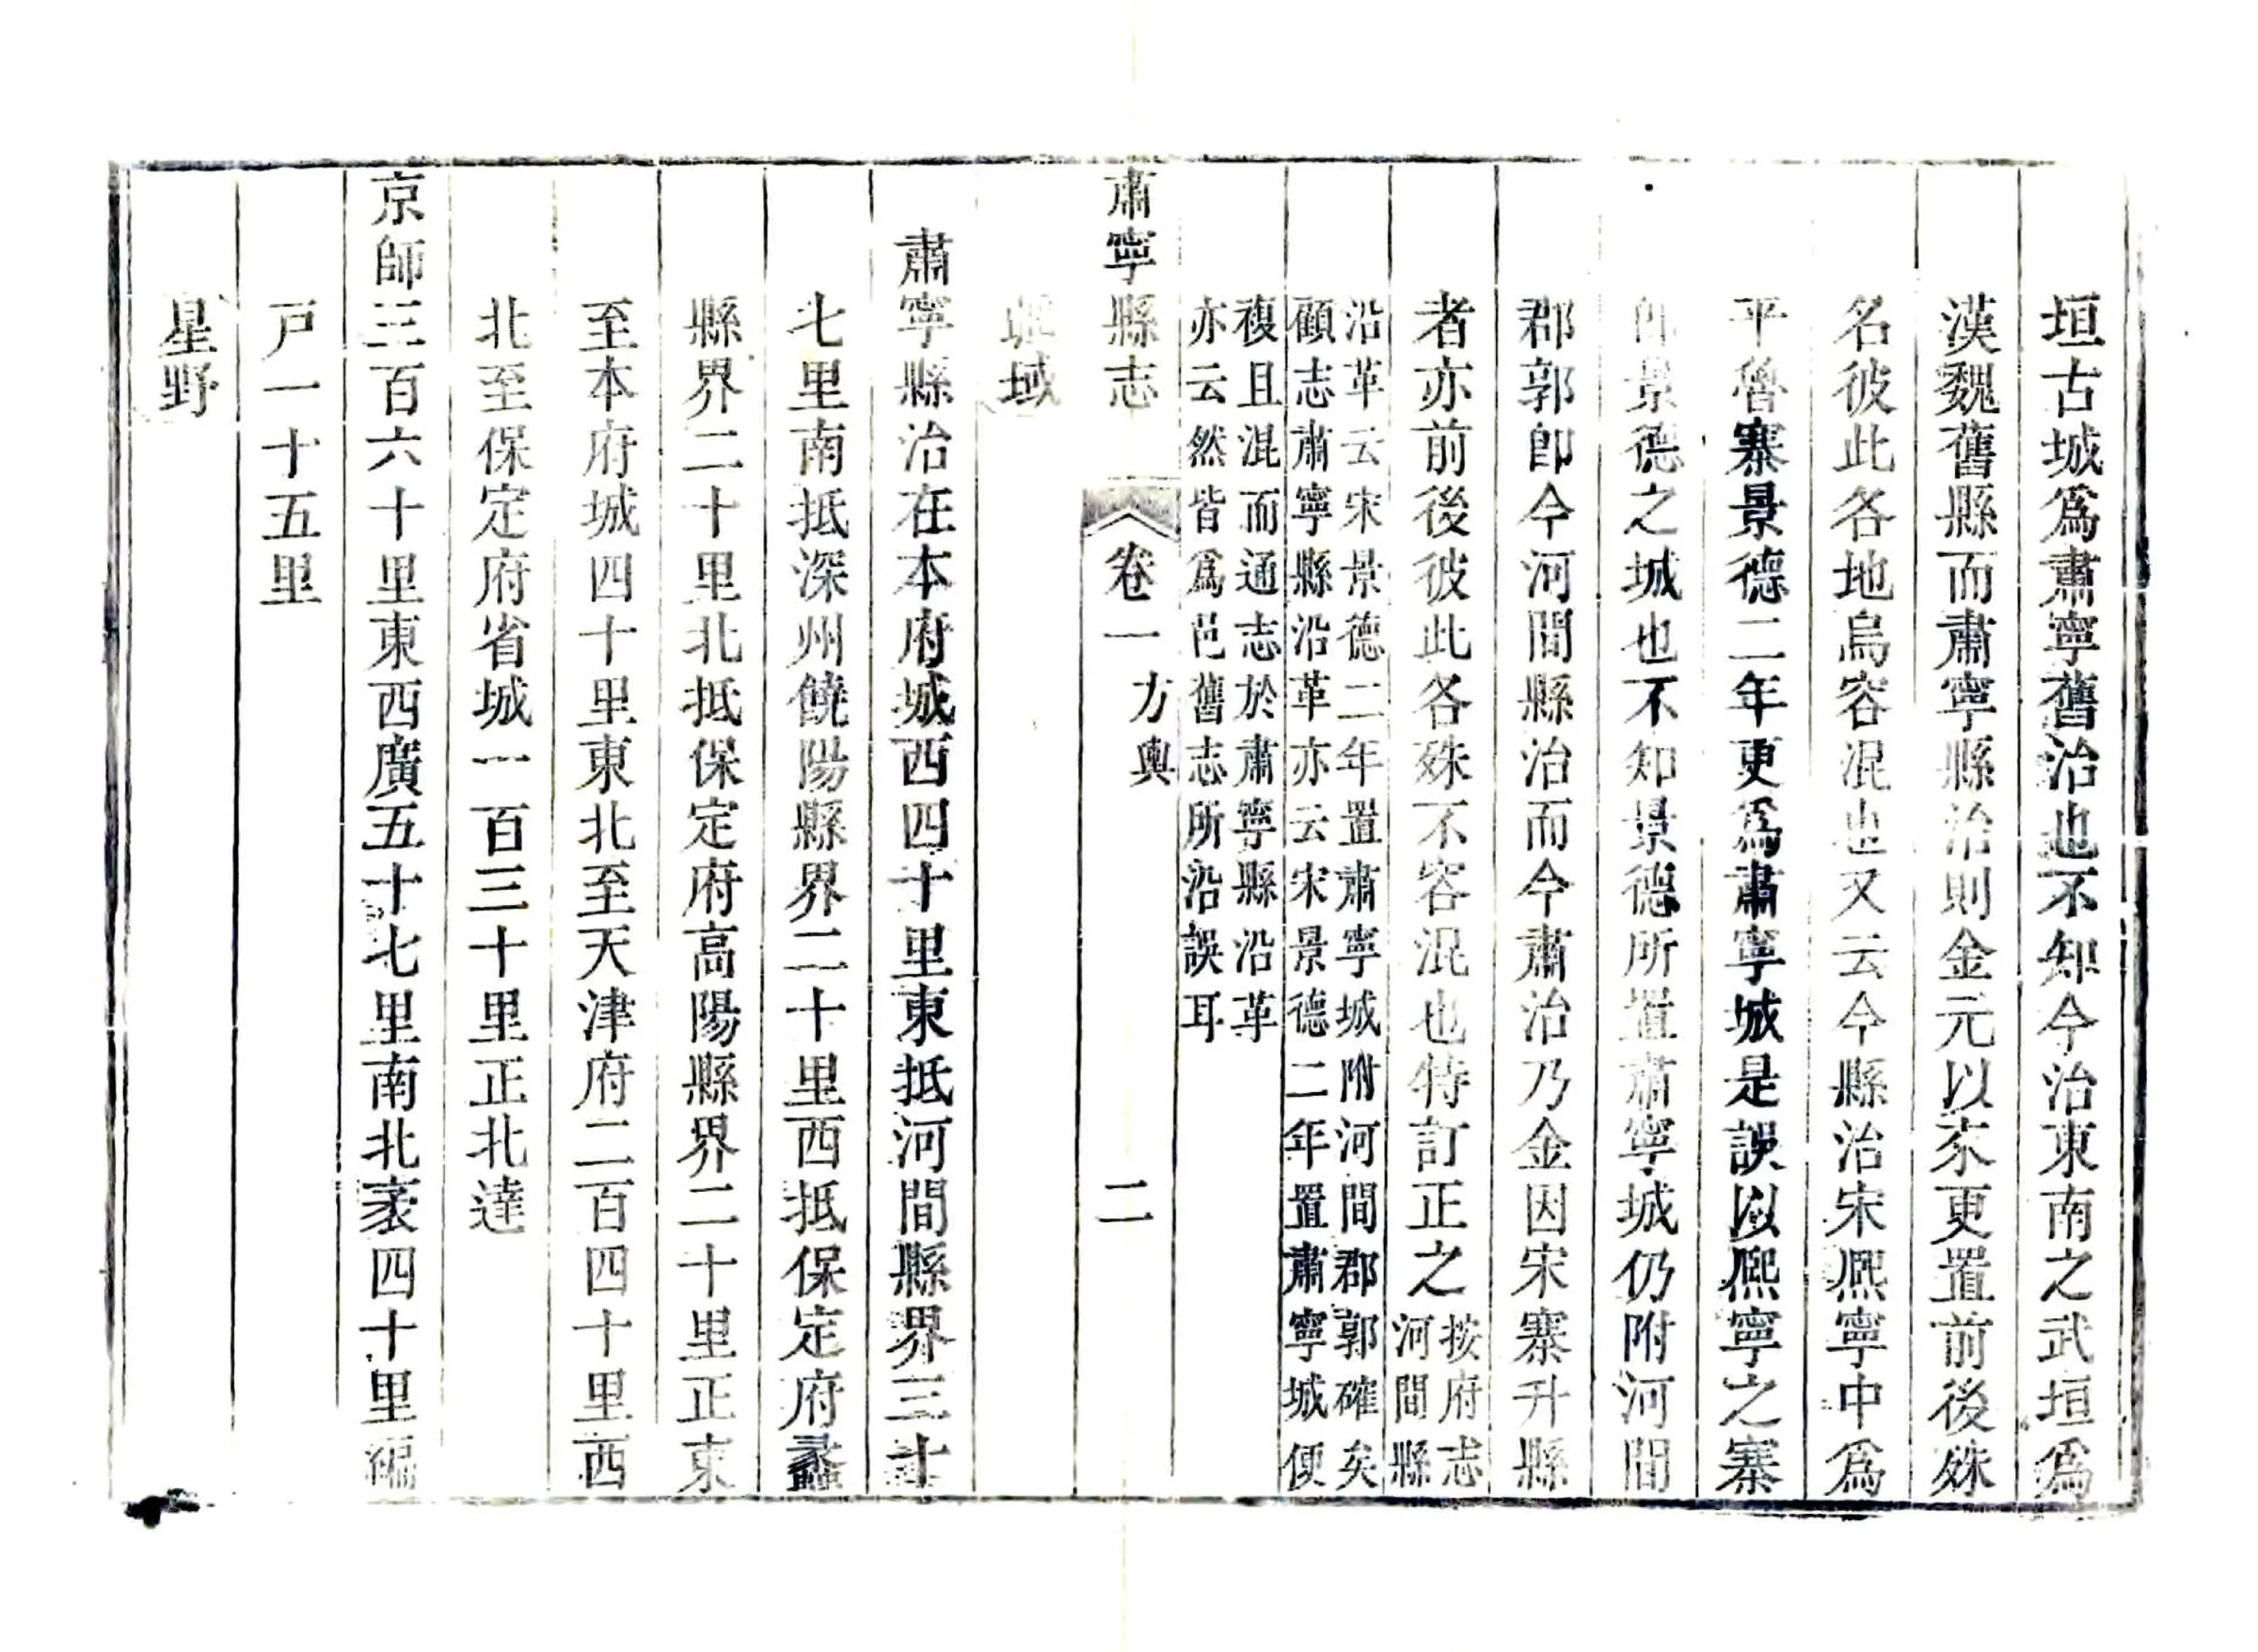 垣古城爲肅寧舊治也不知今治東南之武垣爲
漢魏舊縣而肅寧縣治則金元以來更置前後殊
名彼此各地烏容混也又云今縣治宋熈寧中爲
平魯寨景德二年更爲肅寧城是誤以熈寧之寨
即景德之城也不知景德所置肅寧城仍附河間
郡郭卽今河間縣治而今肅治乃金因宋寨升縣
者亦前後彼此各殊不容混也特訂正之按府志河間縣
沿革云宋景德二年置肅寧城附河間郡郭確矣
顧志肅寧縣沿革亦云宋景德二年置肅寧城便
複且混而通志於肅寧縣沿革
亦云然皆爲邑舊志所沿誤耳
肅寧縣志 卷一 方輿 二
疆域
肅寧縣治在本府城西四十里東抵河間縣界三十
七里南抵深州饒陽縣界二十里西抵保定府蠡
縣界二十里北抵保定府高陽縣界二十里正東
至本府城四十里東北至天津府二百四十里西
北至保定府省城一百三十里正北達
京師三百六十里東西廣五十七里南北袤四十里編
戸一十五里
星野